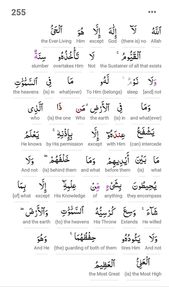 255
ٱللَّهُ لَآ إِلَـٰهَ إِلَّا هُوَ ٱلْحَىُّ
the Ever Living Him except God (there is) no Allah
ٱلْقَيُّومُ لَا تَأْخُذُهُۥ سِنَةٌ
slumber overtakes Him Not the Sustainer of all that exists
وَلَا نَوْمٌ لَّهُۥ مَا فِى ٱلسَّمَـٰوَٰتِ
the heavens (is) in what(ever) To Him (belongs) sleep [and] not
وَمَا فِى ٱلْأَرْضِ مَن ذَا ٱلَّذِى
who (is) the one Who the earth (is) in and what(ever)
يَشْفَعُ عِندَهُۥٓ إِلَّا بِإِذْنِهِۦ يَعْلَمُ
He knows by His permission except with Him (can) intercede
مَا بَيْنَ أَيْدِيهِمْ وَمَا خَلْفَهُمْ وَلَا
And not (is) behind them and what before them (is) what
يُحِيطُونَ بِشَىْءٍ مِّنْ عِلْمِهِۦٓ إِلَّا بِمَا
[of] what except His Knowledge of anything they encompass
شَآءَ وَسِعَ كُرْسِيُّهُ ٱلسَّمَـٰوَٰتِ وَٱلْأَرْضَ
and the earth (to) the heavens His Throne Extends He willed
وَلَا يَـُٔودُهُۥ حِفْظُهُمَا وَهُوَ
And He (the) guarding of both of them tires Him And not
ٱلْعَلِىُّ ٱلْعَظِيمُ
the Most Great (is) the Most High